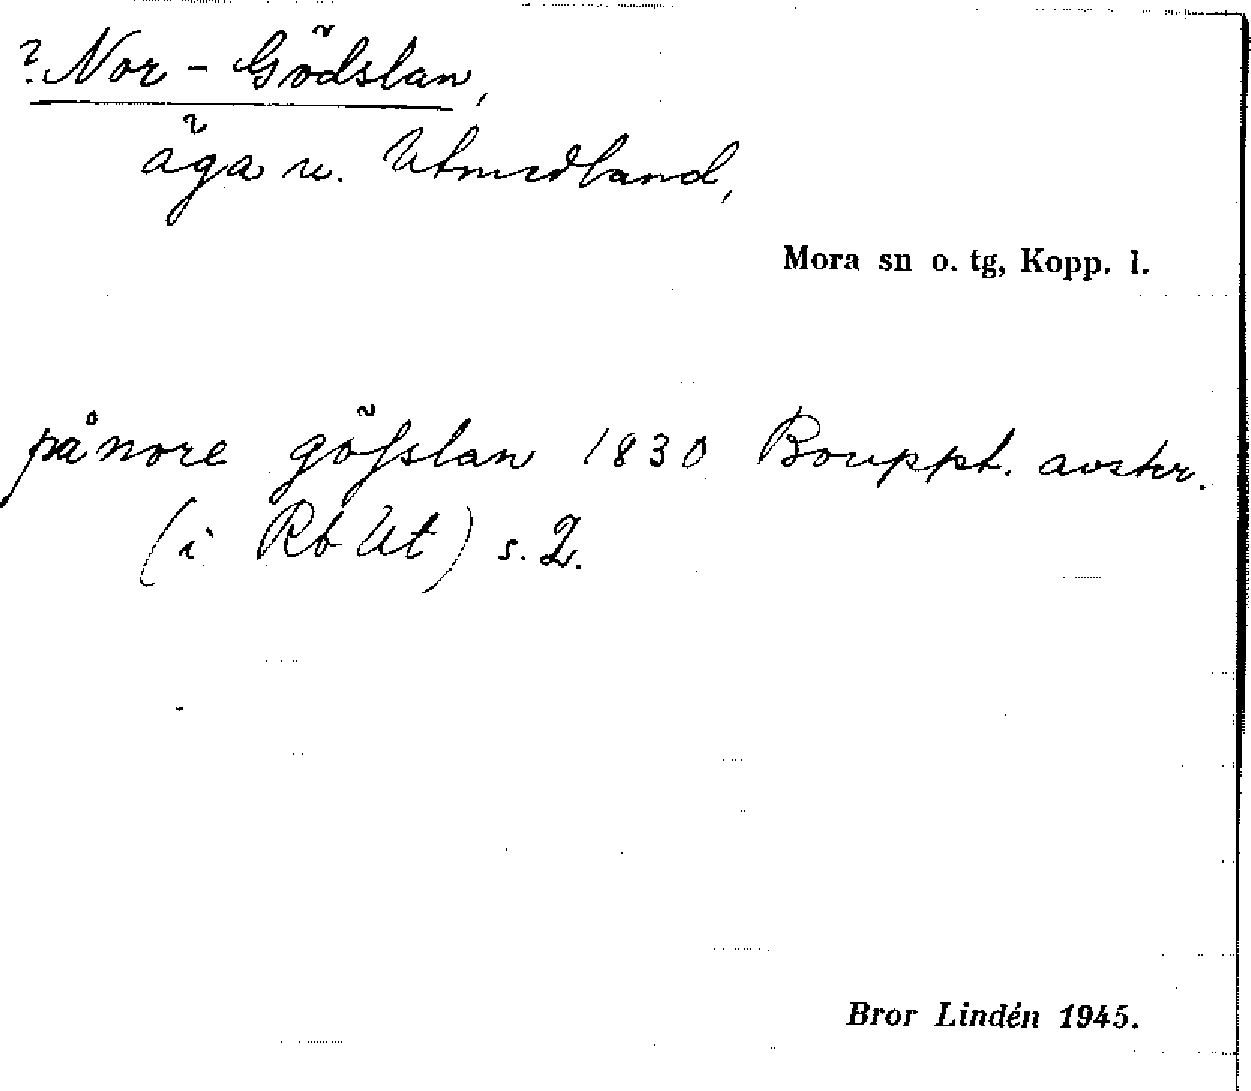 ? Nor-Gödslan,
äga u. Utmedland,
Mora sn o. tg, Kopp. l.
på nore göfslan 1830 Bouppt. avskr.
(i Rb Ut) s. 2.
Bror Lindén 1945.